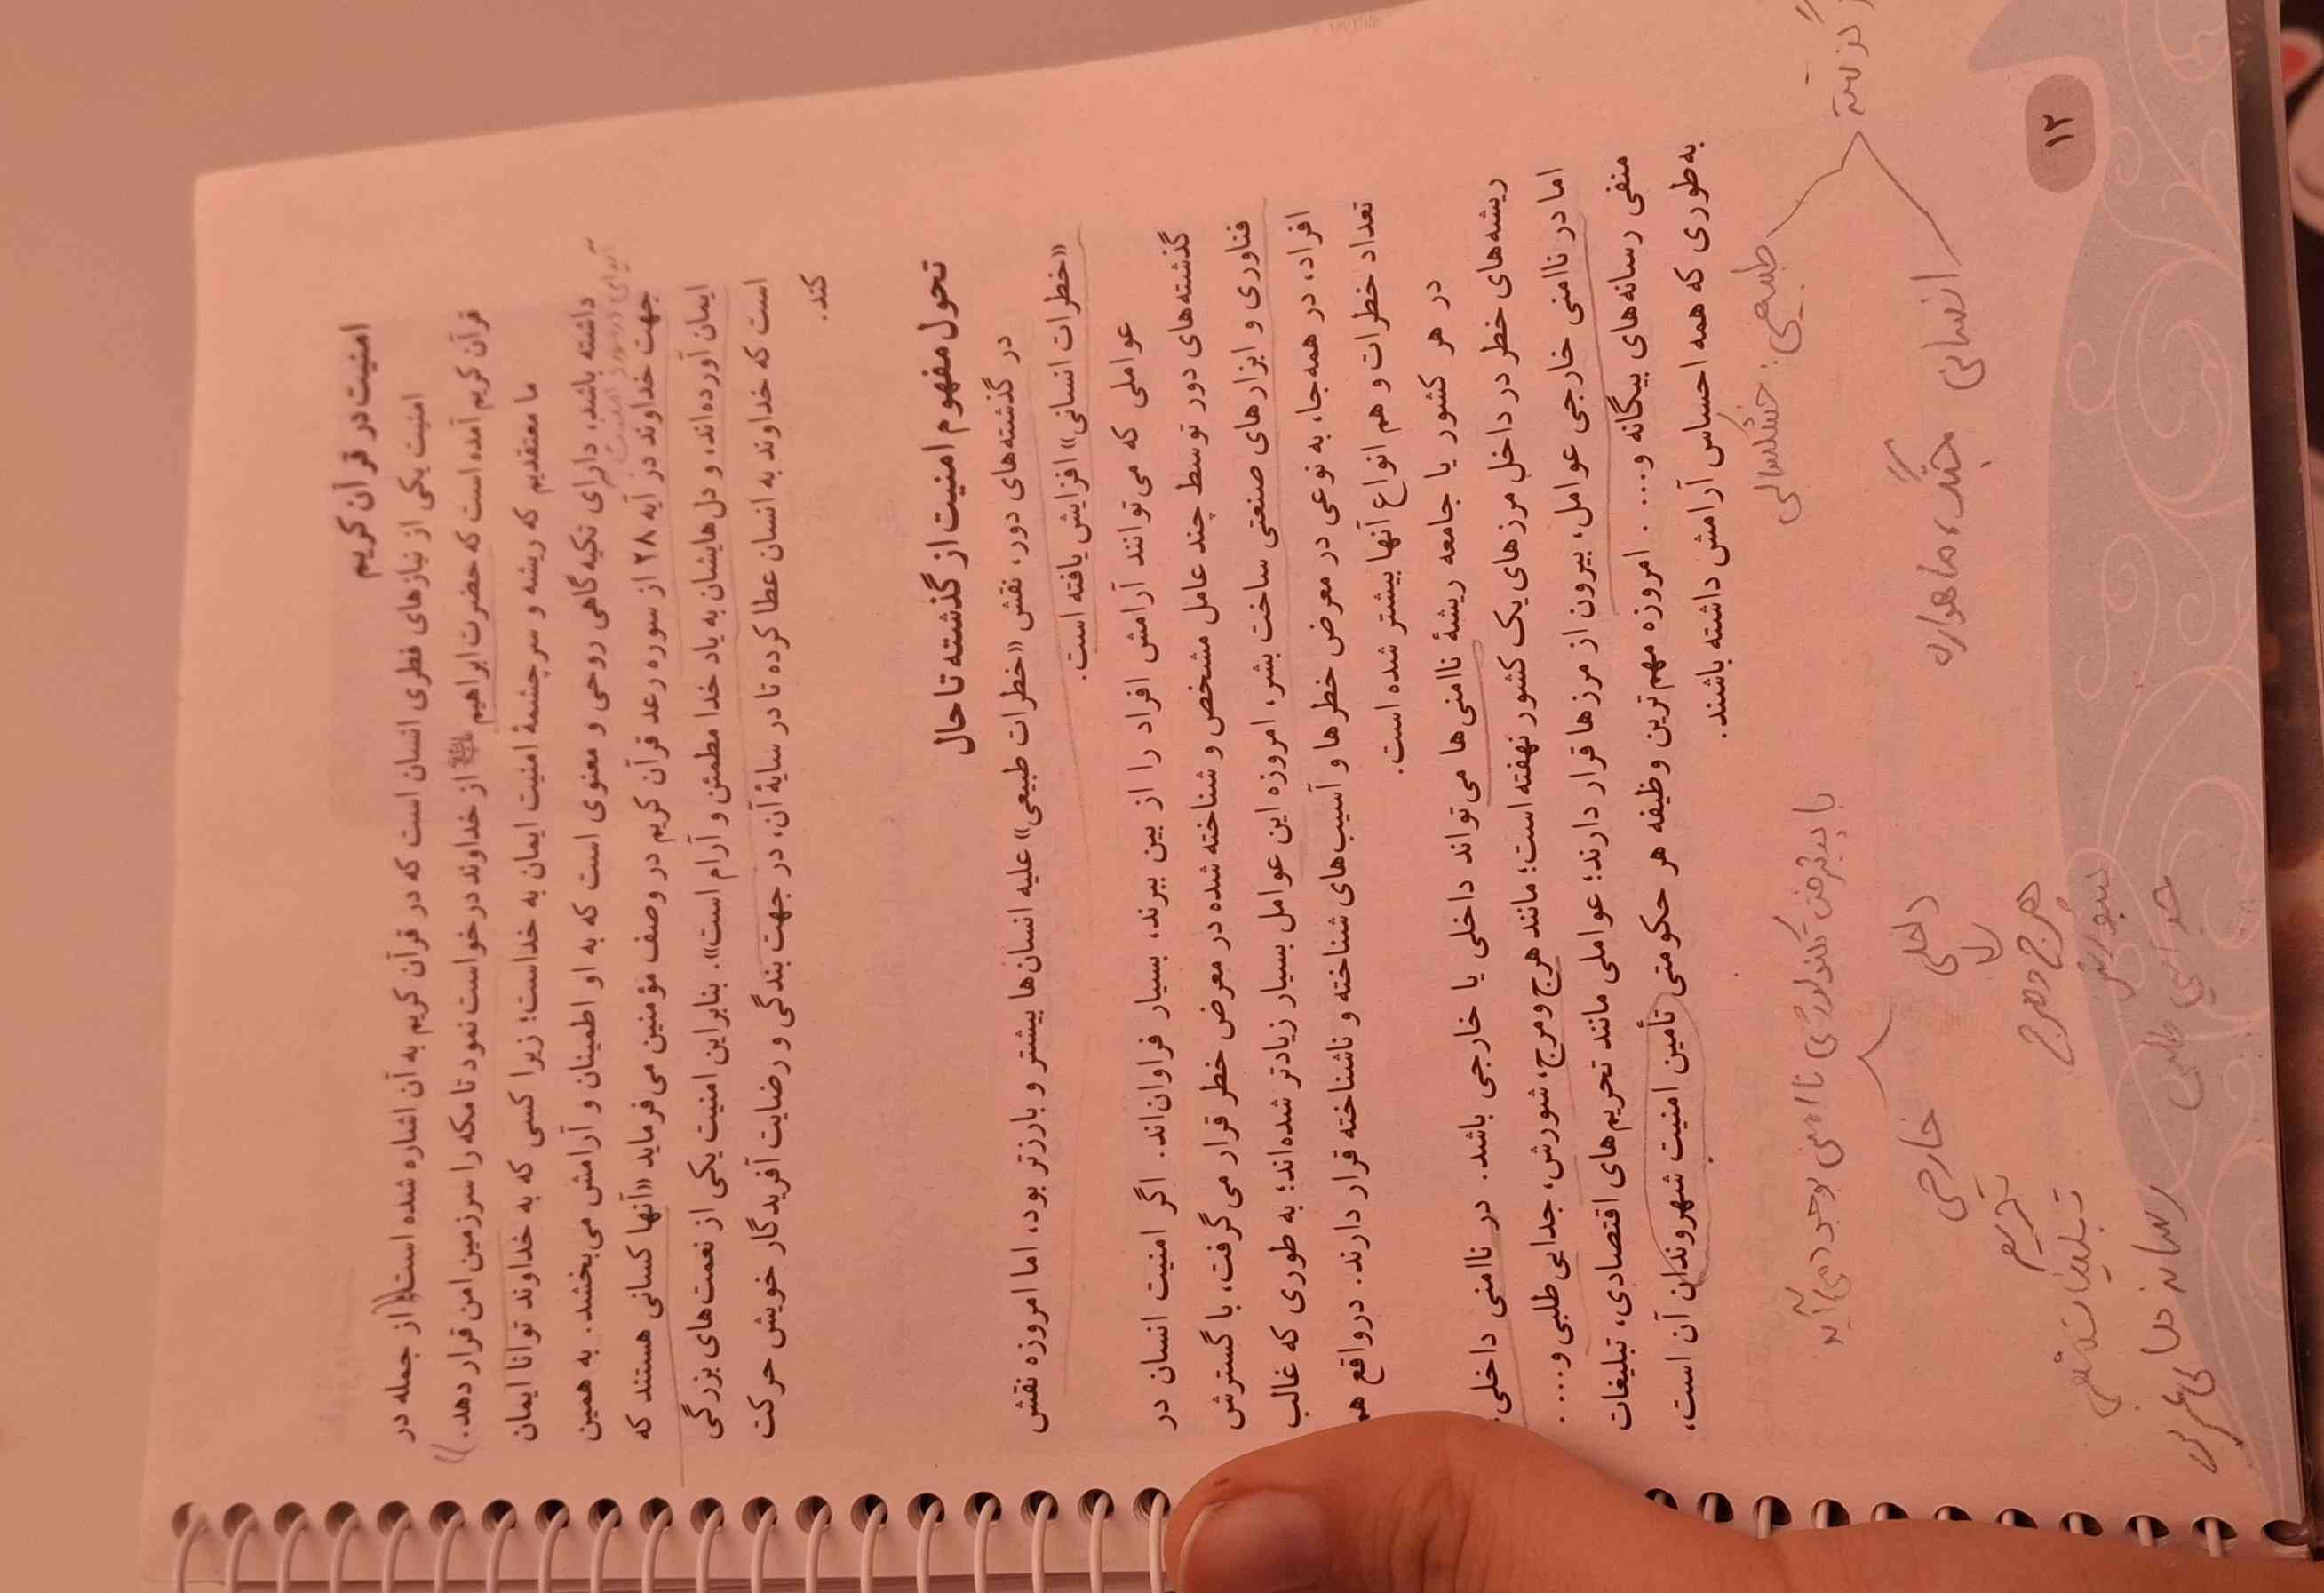 امنیت در قرآن کریم
امنیت یکی از نیازهای فطری انسان است که در قرآن کریم به آن اشاره شده است (از جمله در
قرآن کریم آمده است که حضرت ابراهیم از خداوند درخواست نمود تا مکه را سرزمین امن قرار دهد. ))
ما معتقدیم که ریشه و سرچشمهٔ امنیت ایمان به خداست؛ زیرا کسی که به خداوند توانا ایمان
داشته باشد، دارای تکیه‌گاهی روحی و معنوی است که به او اطمینان و آرامش می‌بخشد. به همین
جهت خداوند در آیه ۲۸ از سوره رعد قرآن کریم در وصف مؤمنین می‌فرماید «آنها کسانی هستند که
ایمان آورده‌اند، و دل‌هایشان به یاد خدا مطمئن و آرام است». بنابراین امنیت یکی از نعمت‌های بزرگی
است که خداوند به انسان عطا کرده تا در سایهٔ آن، در جهت بندگی و رضایت آفریدگار خویش حرکت
کند.
تحول مفهوم امنیت از گذشته تا حال
در گذشته‌های دور، نقش «خطرات طبیعی» علیه انسان‌ها بیشتر و بارزتر بود، اما امروزه نقش
«خطرات انسانی» افزایش یافته است.
عواملی که می‌توانند آرامش افراد را از بین ببرند، بسیار فراوان‌اند. اگر امنیت انسان در
گذشته‌های دور توسط چند عامل مشخص و شناخته شده در معرض خطر قرار می‌گرفت، با گسترش
فناوری و ابزارهای صنعتی ساخت بشر، امروزه این عوامل بسیار زیادتر شده‌اند؛ به طوری که غالب
افراد، در همه‌جا، به نوعی در معرض خطرها و آسیب‌های شناخته و ناشناخته قرار دارند. درواقع هم
تعداد خطرات و هم انواع آنها بیشتر شده است.
در هر کشور یا جامعه ریشهٔ ناامنی‌ها می‌تواند داخلی یا خارجی باشد. در ناامنی داخلی
ریشه‌های خطر در داخل مرزهای یک کشور نهفته است؛ مانند هرج و مرج، شورش، جدایی طلبی و....
اما در ناامنی خارجی عوامل، بیرون از مرزها قرار دارند؛ عواملی مانند تحریم‌های اقتصادی، تبلیغات
منفی رسانه‌های بیگانه و.... امروزه مهم‌ترین وظیفه هر حکومتی تأمین امنیت شهروندان آن است،
به‌طوری که همه احساس آرامش داشته باشند.
گذشته
طبیعی: خشکسالی
انسانی جنگ، ماهواره
با پیشرفت تکنولوژی ناامنی بوجود می‌آید
داخلی
خارجی
هرج و مرج
شورش
جدایی طلبی
تحریم
تبلیغات منفی
رسانه های غربی
۱۲